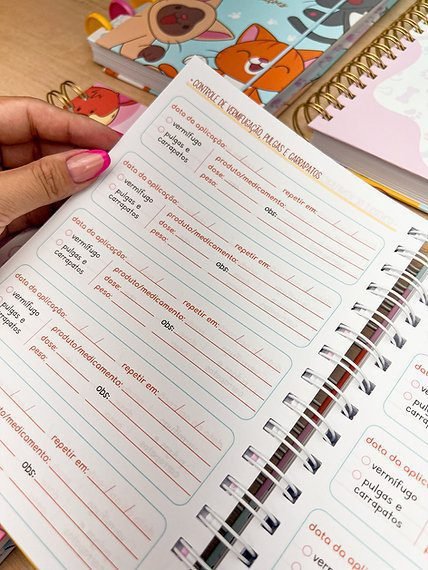 • CONTROLE DE VERMIFUGAÇÃO, PULGAS E CARRAPATOS
data da aplicação: / /
vermífugo
pulgas e
carrapatos
produto/medicamento: repetir em: / /
dose:
peso: obs:
data da aplicação: / /
vermífugo
pulgas e
carrapatos
produto/medicamento: repetir em: / /
dose:
peso: obs:
data da aplicação: / /
vermífugo
pulgas e
carrapatos
produto/medicamento: repetir em: / /
dose:
peso: obs:
data da aplicação: / /
vermífugo
pulgas e
carrapatos
produto/medicamento: repetir em: / /
dose:
peso: obs:
to/medicamento: repetir em: / /
obs:
data da
vermífugo
pulgas e
carrapatos
data da aplica